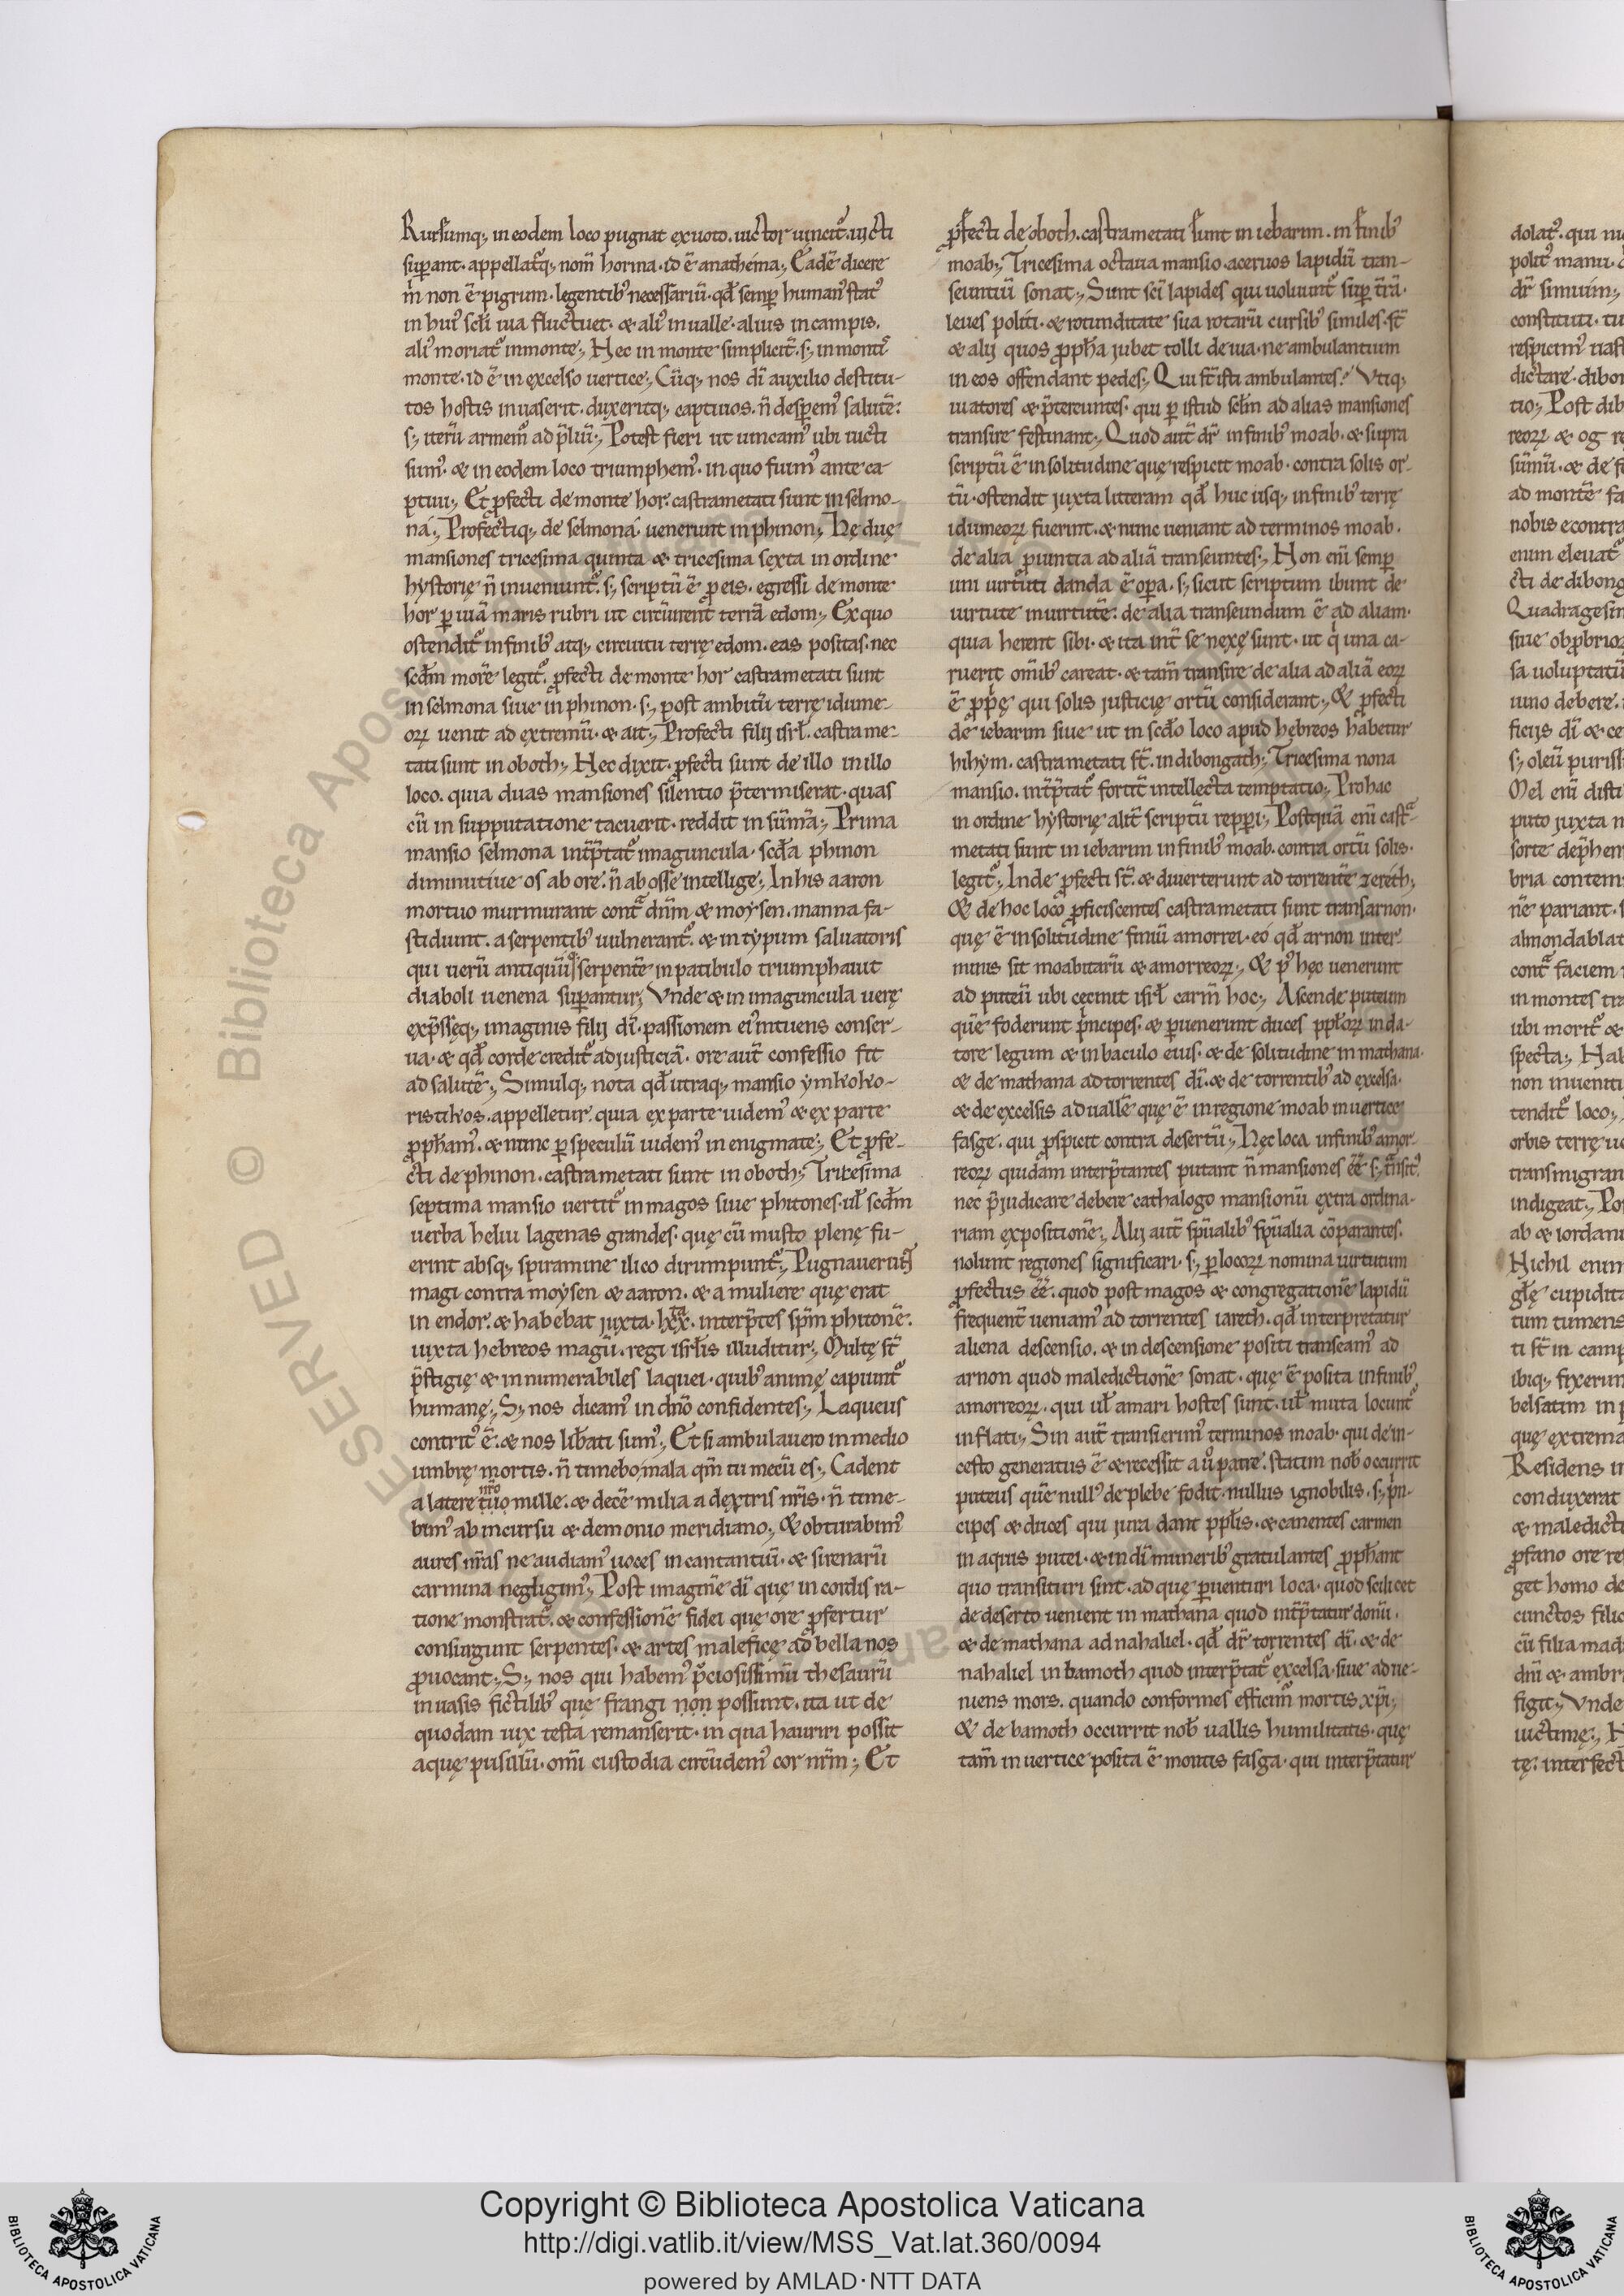 Rursumq; in eodem loco pugnat ex uoto. uictor uincit᷒. uicti
sup̱ant. appellat᷒q; nom̄ horma. id ē anathema; Eadē dicere
m̄ non ē pigrum. legentib᷒ necessariū. qđ semp̱ human᷒ stat᷒
in hui᷒ sc̄li uia fluctuet. & ali᷒ in ualle. alius in campis.
ali᷒ moriat᷒ in monte; Hec in monte simplicit̄. s; in monti᷒
monte. id ē in excelso uertice; Cūq; nos dī auxilio destitu-
tos hostis inuaserit. duxeritq; captiuos. n̄ desp̱em᷒ salutē.
s; iterū armem᷒ ad p̄liū; Potest fieri ut uincam᷒ ubi uicti
sum᷒. & in eodem loco triumphem᷒. in quo fuim᷒ ante ca-
ptiui; Et ꝓfecti de monte hor. castrametati sunt in selmo-
na; Profectiq; de selmona uenerunt in phinon; Hę duę
mansiones tricesima quinta & tricesima sexta in ordine
hystorię n̄ inueniunt᷒. s; scriptū ē ꝓ eis. egressi de monte
hor p̱ uiā maris rubri ut circūirent terrā edom; Ex quo
ostendit᷒ in finib᷒ atq; circuitu terrę edom. eas positas. nec
scđm morē legit᷒. ꝓfecti de monte hor castrametati sunt
in selmona siue in phinon. s; post ambitū terrę idume-
oꝝ uenit ad extremū. & ait; Profecti filij isrł. castrame-
tati sunt in oboth; Hec dixit. ꝓfecti sunt de illo in illo
loco. quia duas mansiones silentio p̄termiserat. quas
cū in supputatione tacuerit. reddit in sūma; Prima
mansio selmona int̄p̄tat᷒ imaguncula. scđa phinon
diminutiue os ab ore. n̄ ab osse intellige; In his aaron
mortuo murmurant cont̄ dn̄m & moysen. manna fa-
stidiunt. a serpentib᷒ uulnerant᷒. & in typum saluatoris
qui uerū antiquū serpentē in patibulo triumphauit
diaboli uenena sup̱antur; Vnde & in imaguncula uerę
exp̄ssęq; imaginis filij dī. passionem ei᷒ intuens conser-
ua. & qđ corde credit᷒ ad justiciā. ore aut̄ confessio fit
ad salutē; Simulq; nota qđ utraq; mansio ymkoko-
ristikos. appelletur. quia ex parte uidem᷒ & ex parte
ꝓph̄am᷒. & nunc p̱ speculū uidem᷒ in enigmate; Et ꝓfe-
cti de phinon. castrametati sunt in oboth; Tricesima
septima mansio uertit᷒ in magos siue phitones. uł scđm
uerba heliu lagenas grandes. quę cū musto plenę fu-
erint absq; spiramine ilico dirumpunt᷒; Pugnauerunt
magi contra moysen & aaron. & a muliere quę erat
in endor. & habebat juxta. lxx.ta interp̄tes sp̄m phitonē.
iuxta hebreos magū. regi isrłis illuditur; Multę st̄
p̄stigię & innumerabiles laquei. quib᷒ animę capiunt᷒
humanę; S; nos dicam᷒ in dn̄o confidentes; Laqueus
contrit᷒ ē. & nos lib̄ati sum᷒; Et si ambulauero in medio
umbrę mortis. n̄ timebo mala qm̄ tu mecū es; Cadent
a latere tuo nr̄o mille. & decē milia a dextris nr̄is. n̄ time-
bim᷒ ab incursu & demonio meridiano; & obturabim᷒
aures nr̄as ne audiam᷒ uoces incantantiū. & sirenarū
carmina negligim᷒; Post imaginē dī quę in cordis ra-
tione monstrat᷒. & confessionē fidei quę ore ꝓfertur
consurgunt serpentes. & artes maleficę ad bella nos
ꝓuocant; S; nos qui habem᷒ p̄ciosissimū thesaurū
in uasis fictilib᷒ quę frangi non possunt. ita ut de
quodam uix testa remanserit. in qua hauriri possit
aquę pusillū. om̄i custodia circūdem᷒ cor nr̄m; Et
ꝓfecti de oboth. castrametati sunt in iebarim. in finib᷒
moab; Tricesima octaua mansio. aceruos lapidū tran-
seuntiū sonat; Sunt sc̄i lapides qui uoluunt᷒ sup̱ t̄rā.
leues politi. & rotunditate sua rotarū cursib᷒ similes. st̄
& alij quos ꝓph̄a jubet tolli de uia. ne ambulantium
in eos offendant pedes; Qui st̄ isti ambulantes? Vtiq;
uiatores & p̄tereuntes. qui p̱ istud sc̄lm ad alias mansiones
transire festinant; Quod aut̄ dr̄ in finib᷒ moab. & supra
scriptū ē in solitudine quę respicit moab. contra solis or-
tū. ostendit juxta litteram qđ huc usq; in finib᷒ terrę
idumeoꝝ fuerint. & nunc ueniant ad terminos moab.
de alia ꝓuintia ad aliā transeuntes; Non eni̅ semp̱
uni uirtuti danda ē op̱a. s; sicut scriptum ibunt de
uirtute in uirtutē. de alia transeundum ē ad aliam.
quia herent sibi. & ita int̄ se nexę sunt. ut q̇ una ca-
ruerit om̄ib᷒ careat. & tam̄ transire de alia ad aliā eoꝝ
ē ꝓp̄ę qui solis justicię ortū considerant; & ꝓfecti
de iebarim siue ut in scđo loco apud hębreos habetur
hihym. castrametati st̄. in dibongath; Tricesima nona
mansio. int̄p̄tat᷒ fortit̄ intellecta temp̱tatio; Pro hac
in ordine hystorię alit̄ scriptū repp̱i; Postquā eni̅ cast̄-
metati sunt in iebarim in finib᷒ moab. contra ortū solis.
legit᷒. Inde ꝓfecti st̄. & diuerterunt ad torrentē zereth;
& de hoc loco ꝓficiscentes castrametati sunt trans arnon.
quę ē in solitudine finiū amorrei. eo qđ arnon inter-
minus sit moabitarū & amorreoꝝ; & p᷒ hęc uenerunt
ad puteū ubi cęcinit isrł carm̄ hoc; Ascende puteum
quē foderunt p̄ncipes. & p̱uenerunt duces pp̄loꝝ in da-
tore legum & in baculo eius. & de solitudine in mathana.
& de mathana ad torrentes dī. & de torrentib᷒ ad excelsa.
& de excelsis ad uallē quę ē in regione moab in uertice
fasge. qui ꝓspicit contra desertū; Hęc loca in finib᷒ amor-
reoꝝ quidam interp̄tantes putant n̄ mansiones ēē s; t̄nsit᷒.
nec p̄judicare debere cathalogo mansionū extra ordina-
riam expositionē; Alij aut̄ sp̄ualib᷒ sp̄ualia cōparantes.
nolunt regiones significari. s; p̱ locoꝝ nomina uirtutum
ꝓfectus ēē. quod post magos & congregationē lapidū
frequent̄ ueniam᷒ ad torrentes iareth. qđ interpretatur
aliena descensio. & in descensione positi transeam᷒ ad
arnon quod maledictionē sonat. quę ē posita in finib᷒
amorreoꝝ. qui uł amari hostes sunt. uł multa locunt᷒
inflati; Sin aut̄ transierim᷒ terminos moab. qui de in-
cesto generatus ē & recessit a u᷒o patre. statim nob̄ occurrit
puteus quē null᷒ de plebe fodit. nullus ignobilis. s; p̄n-
cipes & duces qui jura dant pp̄lis. & canentes carmen
in aquis putei. & in dī munerib᷒ gratulantes ꝓph̄ant
quo transituri sint. ad quę p̱uenturi loca. quod scilicet
de deserto uenient in mathana quod int̄p̄tatur donū.
& de mathana ad nahaliel. qđ dr̄ torrentes dī. & de
nahaliel in bamoth quod interp̄tat᷒ excelsa. siue adue-
niens mors. quando conformes efficim᷒ mortis xp̄i;
& de bamoth occurrit nob̄ uallis humilitatis. quę
tam̄ in uertice posita ē montis fasga. qui interp̄tatur
Copyright © Biblioteca Apostolica Vaticana
http://digi.vatlib.it/view/MSS_Vat.lat.360/0094
powered by AMLAD·NTT DATA
BIBLIOTECA APOSTOLICA VATICANA
BIBLIOTECA APOSTOLICA VATICANA